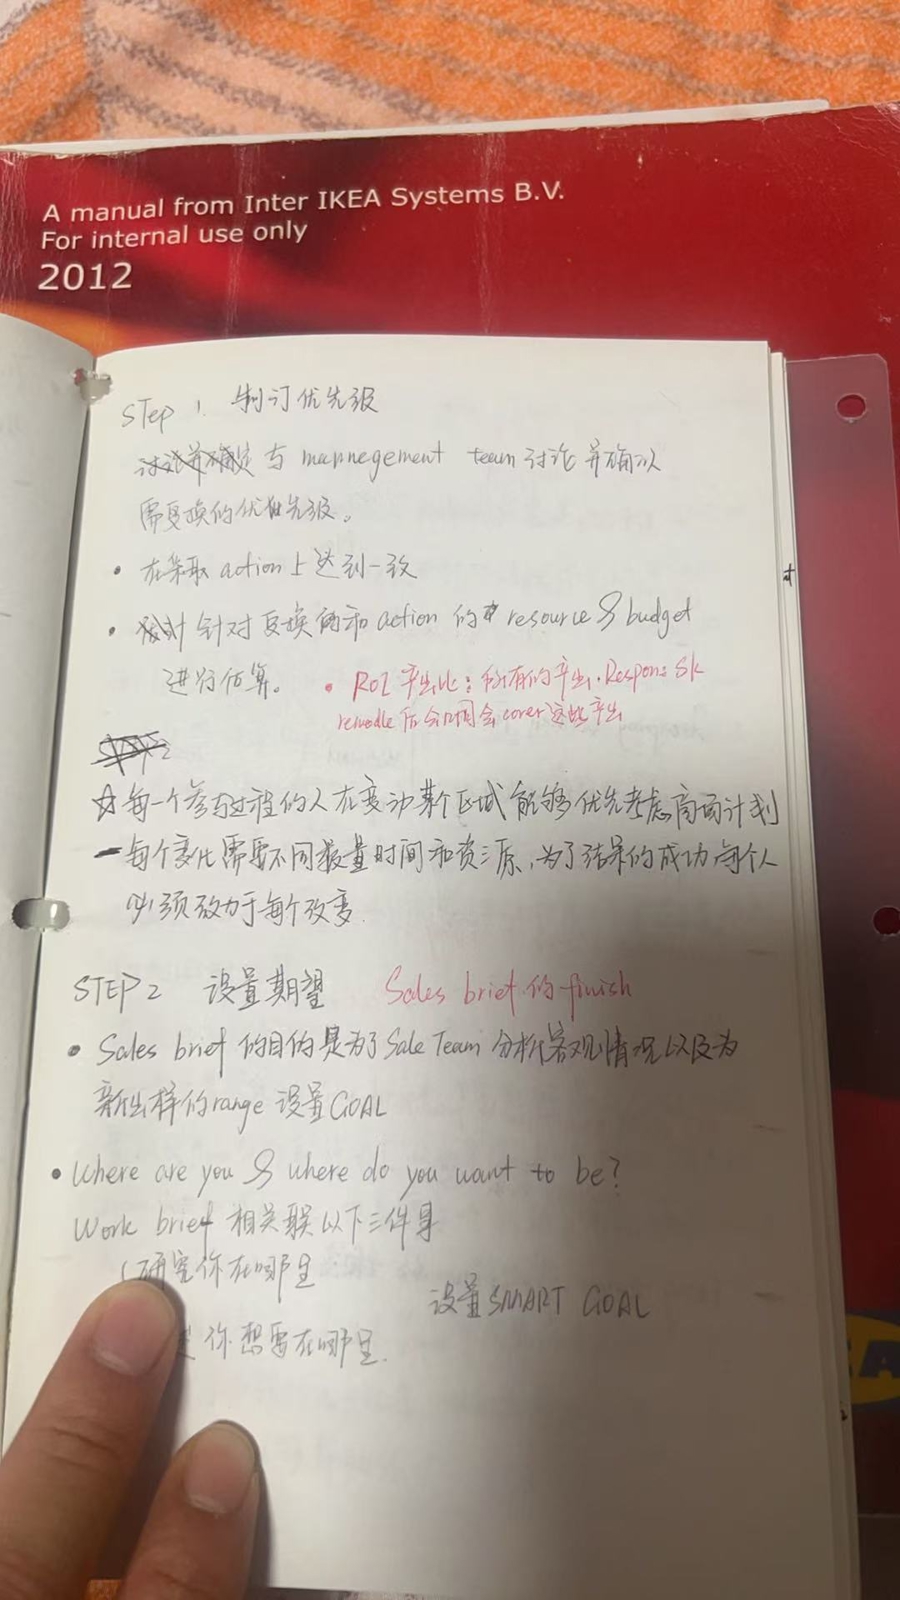 A manual from Inter IKEA Systems B.V.
For internal use only
2012
STep 1. 制订优先级
与 mannegement team 讨论并确认
需更换的优先级。
• 在采取 action 上达到一致
• 针对更换的和 action 的 resource & budget
进行估算。
• ROI 产出比：所有的产出.
后会 cover 这些产出
☆ 每一个参与过程的人在变动某个区域能够优先考虑商场计划
- 每个变化需要不同数量时间和资源，为了结果的成功，每个人
必须致力于每个改变.
STEP 2 设置期望 Sales brief 的 finish
• Sales brief 的目的是为了 Sale Team 分析客观情况以及为
新出样的 range 设置 GOAL
• Where are you & where do you want to be?
Work brief 相关联以下三件事
研究你在哪里
设置 SMART GOAL
你想要在哪里.